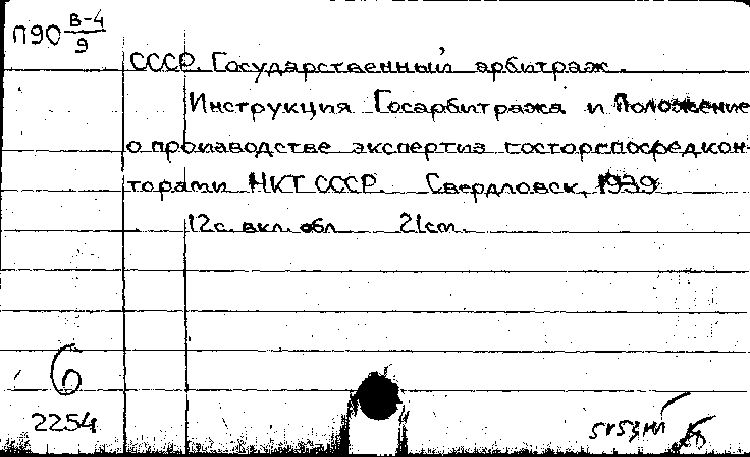 П90 В-4
9
СССР. Государственный арбитраж.
Инструкция Госарбитража и Положение
о производстве экспертиз госторгпосредкон-
торами НКТ СССР. Свердловск, 1939
12с. вкл. обл 21см.
6
2254